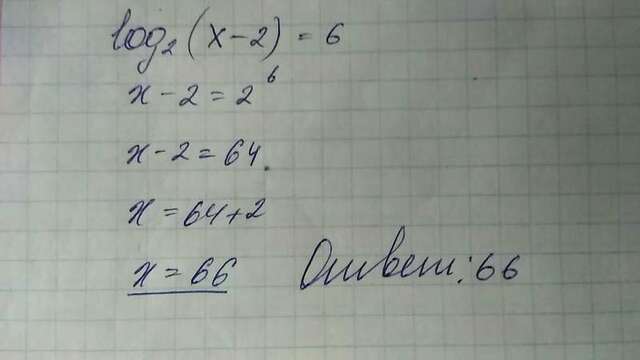 log₂(x-2) = 6
x-2=2⁶
x-2=64
x=64+2
x=66 Ответ: 66